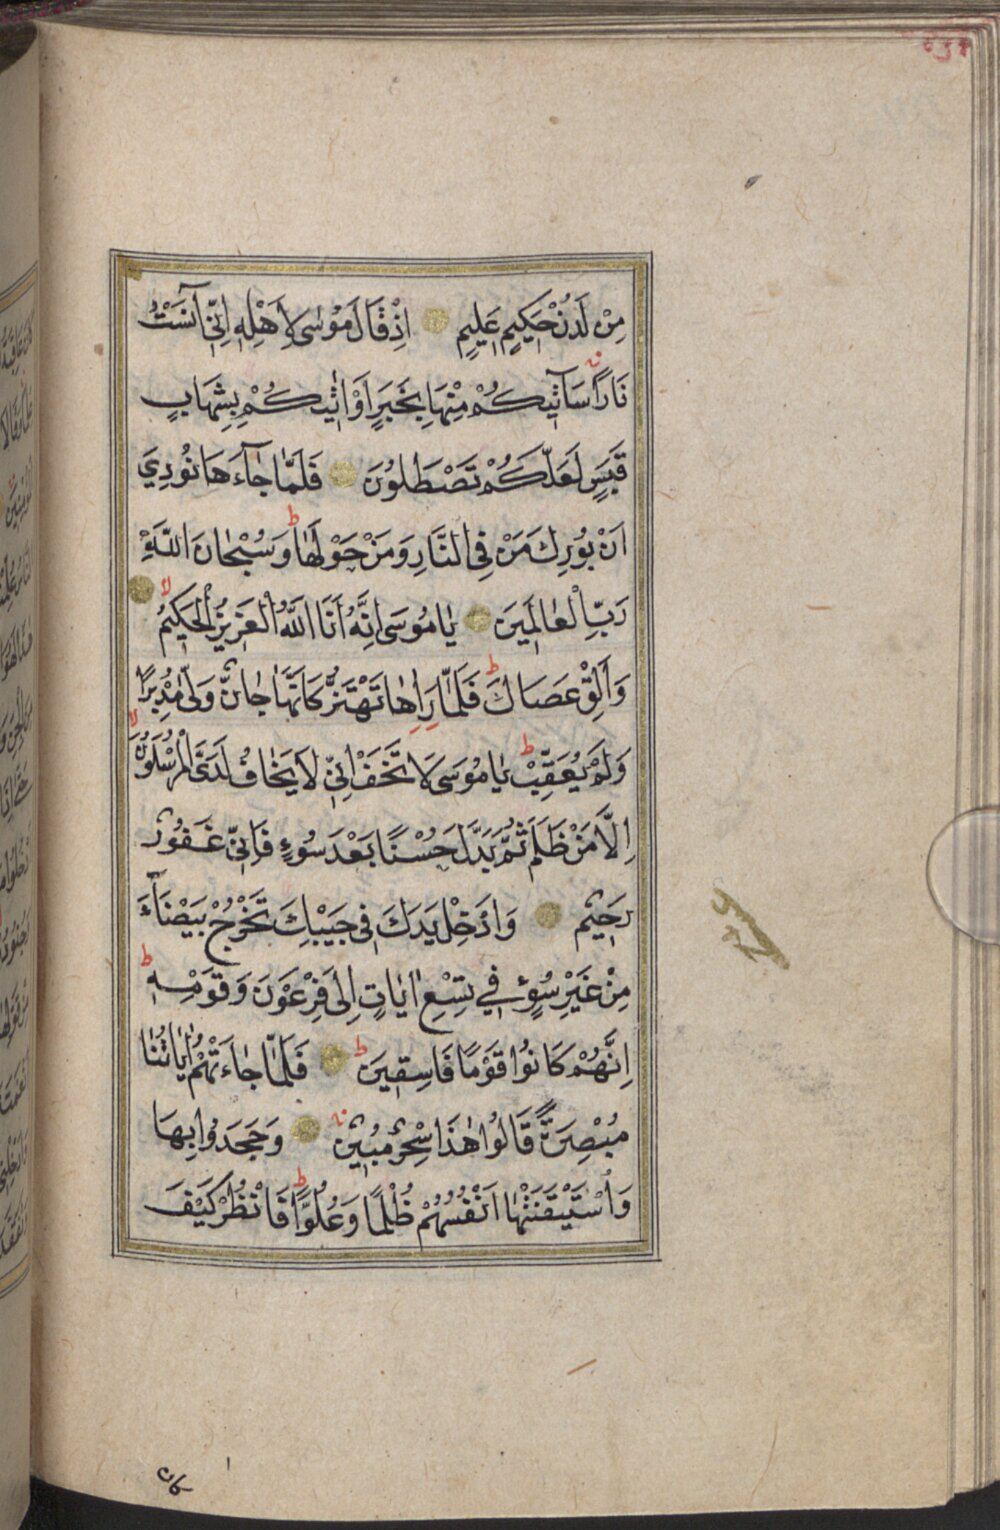 مِنْ لَدُنْ حَكِيمٍ عَلِيمٍ اِذْ قَالَ مُوْسٰى لِاَهْلِهِ اِنّٖى آنَسْتُ
نَارًا سَآتٖيكُمْ مِنْهَا بِخَبَرٍ اَوْ اٰتٖيكُمْ بِشِهَابٍ
قَبَسٍ لَعَلَّكُمْ تَصْطَلُوْنَ فَلَمَّا جَآءَهَا نُوْدِيَ
اَنْ بُوْرِكَ مَنْ فِى النَّارِ وَمَنْ حَوْلَهَا وَسُبْحَانَ اللّٰهِ
رَبِّ الْعَالَمِينَ يَا مُوسَى اِنَّهُ اَنَا اللّٰهُ الْعَزِيزُ الْحَكِيمُ
وَاَلْقِ عَصَاكَ فَلَمَّا رَاٰهَا تَهْتَزُّ كَاَنَّهَا جَانٌّ وَلّٰى مُدْبِرًا
وَلَمْ يُعَقِّبْ يَا مُوسَى لَا تَخَفْ اِنّٖى لَا يَخَافُ لَدَىَّ الْمُرْسَلُوْنَ
اِلَّا مَنْ ظَلَمَ ثُمَّ بَدَّلَ حُسْنًا بَعْدَ سُوءٍ فَاِنّٖى غَفُورٌ
رَحٖيمٌ وَاَدْخِلْ يَدَكَ فِى جَيْبِكَ تَخْرُجْ بَيْضَآءَ
مِنْ غَيْرِ سُوءٍ فِي تِسْعِ اٰيَاتٍ اِلٰى فِرْعَوْنَ وَقَوْمِهِ
اِنَّهُمْ كَانُوْا قَوْمًا فَاسِقٖينَ فَلَمَّا جَاءَتْهُمْ اٰيَاتُنَا
مُبْصِرَةً قَالُوْا هٰذَا سِحْرٌ مُبٖينٌ وَجَحَدُوا بِهَا
وَاسْتَيْقَنَتْهَا اَنْفُسُهُمْ ظُلْمًا وَعُلُوًّا فَانْظُرْ كَيْفَ
كان